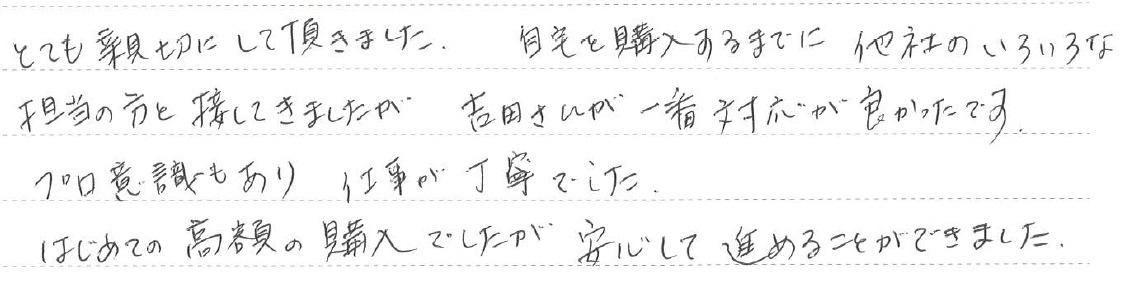 とても親切にして頂きました. 自宅を購入するまでに 他社のいろいろな
担当の方と接してきましたが 吉田さんが一番対応が良かったです.
プロ意識もあり 仕事が丁寧でした.
はじめての高額の購入でしたが 安心して進めることができました.